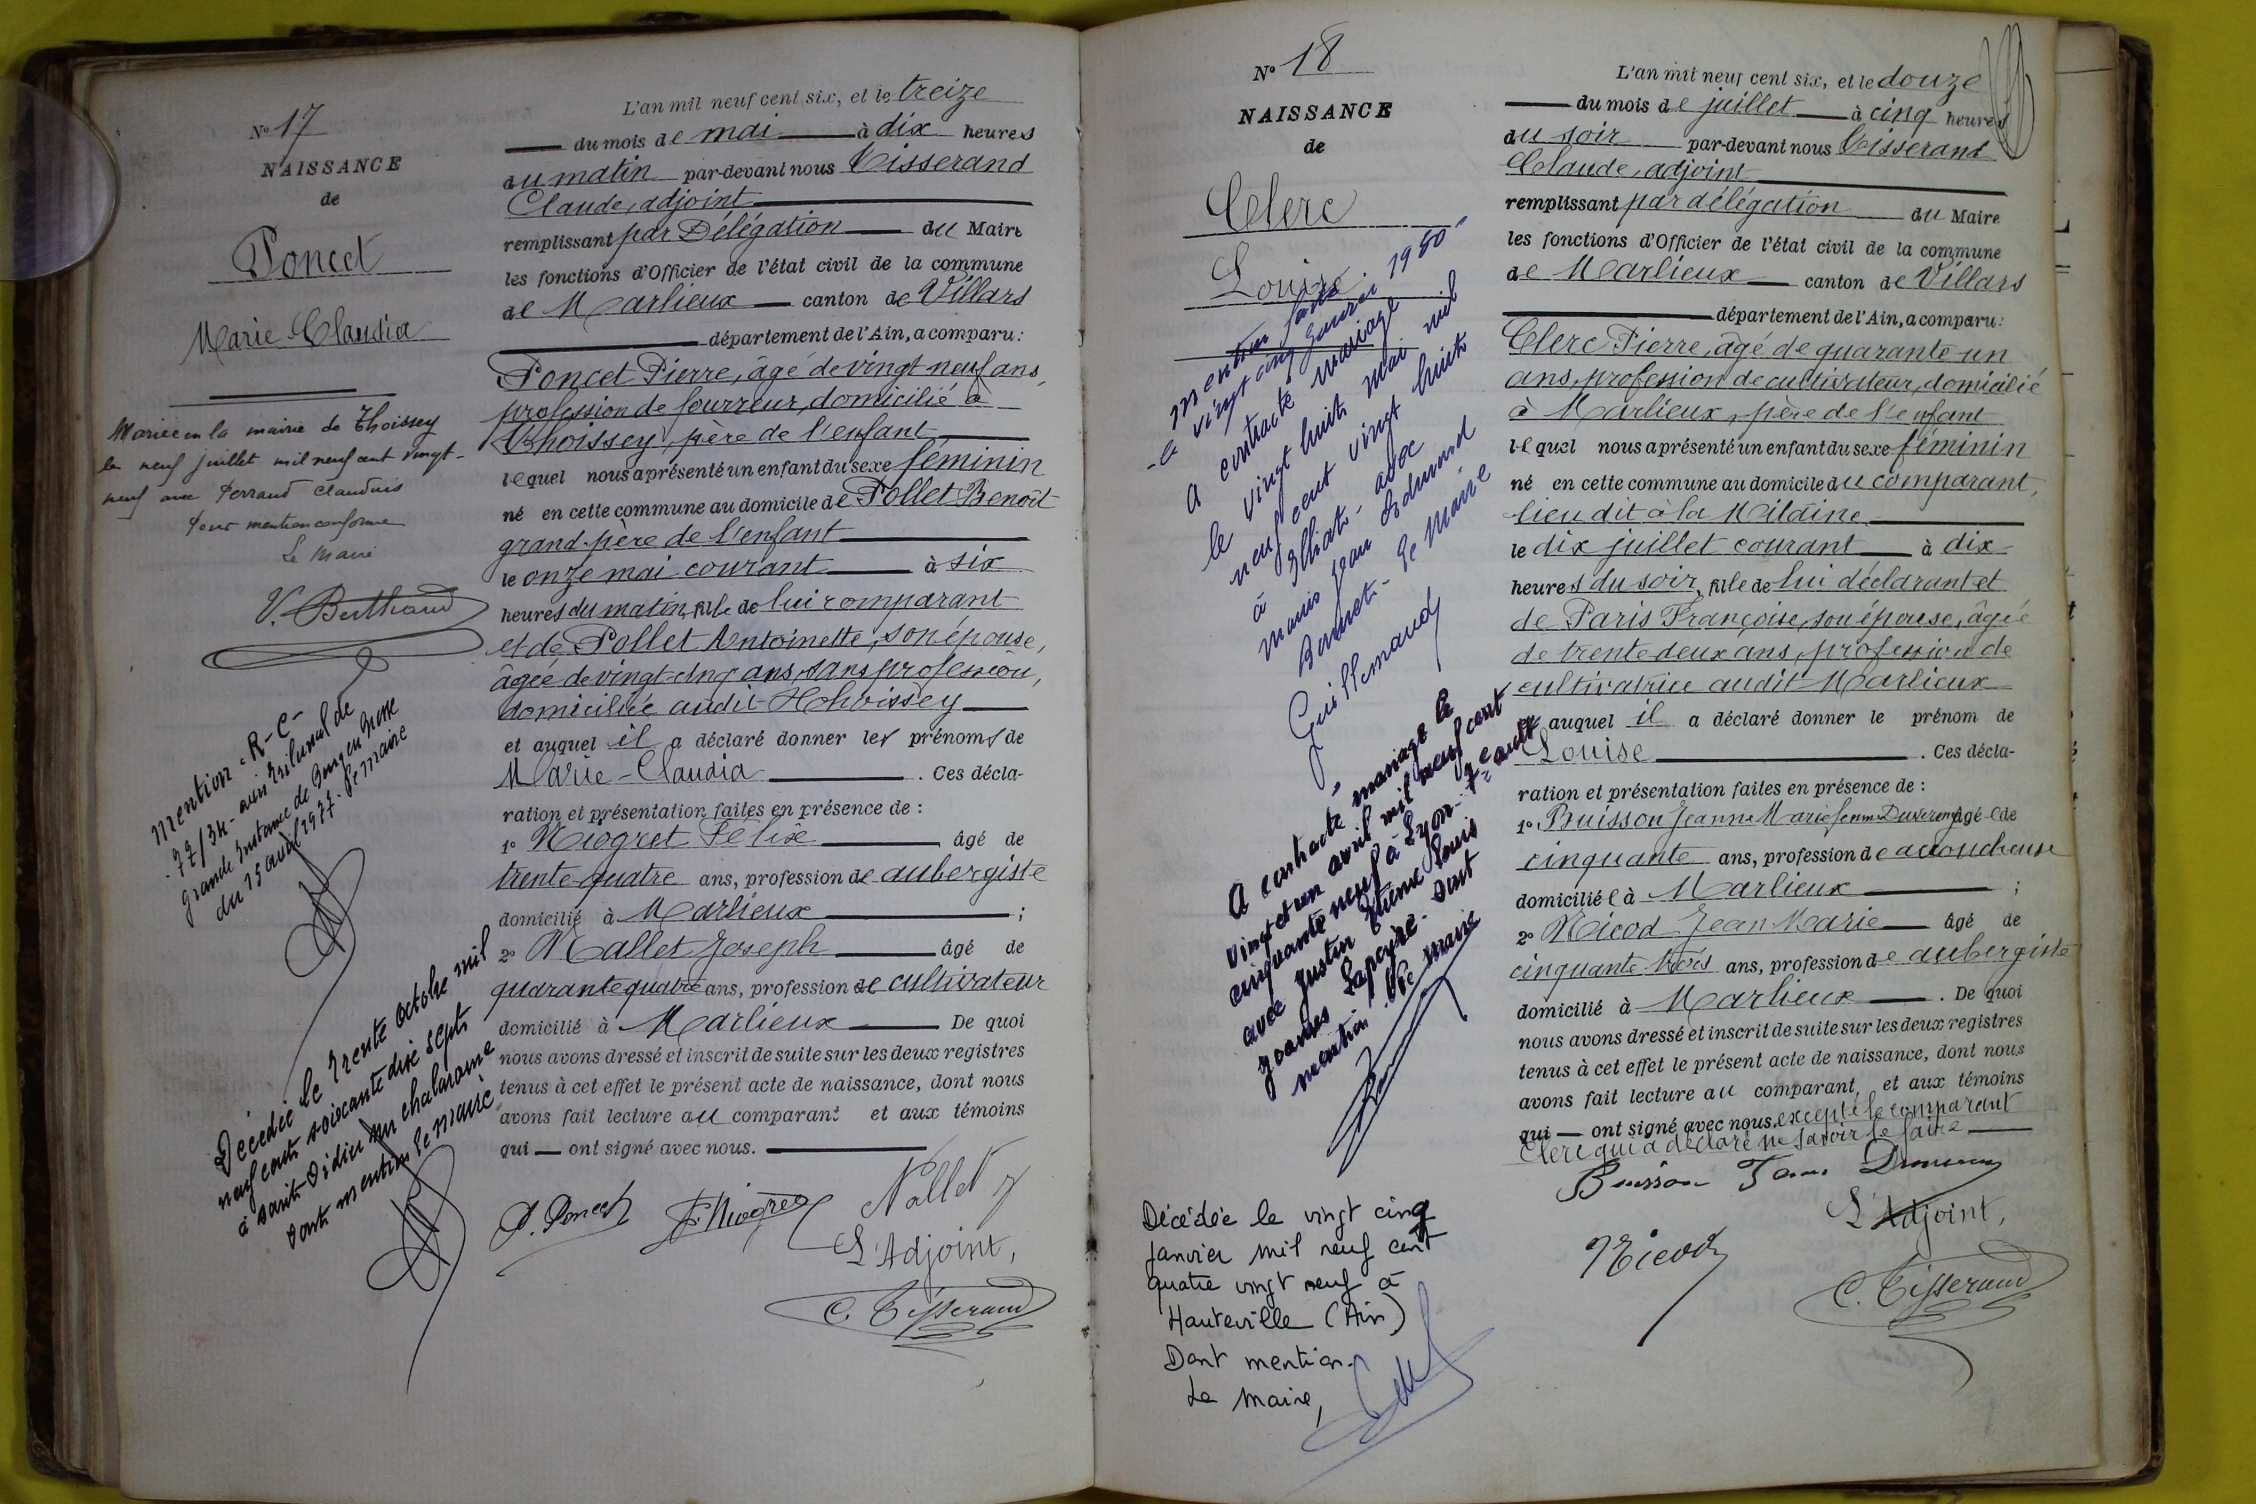 N° 17
NAISSANCE
de
Poncet
Marie Claudia
Mariée en la mairie de Thoissey
le neuf juillet mil neuf cent vingt-
neuf avec Perraud Claudius
Pour mention conforme
Le Maire
V. Berthaud
Mention - R-C-
77/34 - au Tribunal de
Grande Instance de Bourg en Bresse
du 15 avril 1977. Le maire
Décédée le trente octobre mil
neuf cent soixante dix sept
à Saint Didier sur Chalaronne
Dont mention Le maire
L'an mil neuf cent six, et le treize
du mois de mai à dix heures
du matin par-devant nous Tisserand
Claude, adjoint
remplissant par Délégation du Maire
les fonctions d'Officier de l'état civil de la commune
de Marlieux canton de Villars
département de l'Ain, a comparu:
Poncet Pierre, âgé de vingt neuf ans,
profession de fourreur, domicilié à
Thoissey, père de l'enfant
lequel nous a présenté un enfant du sexe féminin
né en cette commune au domicile de Pollet Benoît
grand-père de l'enfant
le onze mai courant à six
heures du matin, fille de lui comparant
et de Pollet Antoinette, son épouse,
âgée de vingt-cinq ans, sans profession,
domiciliée audit Thoissey
et auquel il a déclaré donner les prénoms de
Marie-Claudia . Ces décla-
ration et présentation faites en présence de :
1° Niogret Félix âgé de
trente quatre ans, profession de aubergiste
domicilié à Marlieux ;
2° Nallet Joseph âgé de
quarante quatre ans, profession de cultivateur
domicilié à Marlieux De quoi
nous avons dressé et inscrit de suite sur les deux registres
tenus à cet effet le présent acte de naissance, dont nous
avons fait lecture au comparant et aux témoins
qui — ont signé avec nous.
P. Poncet F. Niogret Nallet J
L'Adjoint,
C. Tisserand
N° 18
NAISSANCE
de
Clerc
Louise
Mention faite
le vingt cinq 1950-
A contracté mariage
le vingt huit mai mil
neuf cent vingt huit
à avec
Jean Edmond
Le Maire
Guillemaud
A contracté mariage le
vingt et un avril mil neuf cent
cinquante neuf à Lyon 7e arrdt
avec Justin Louis
Dont
mention Le maire
Décédée le vingt cinq
janvier mil neuf cent
quatre vingt neuf à
Hauteville (Ain)
Dont mention.
Le Maire,
L'an mil neuf cent six, et le douze
du mois de juillet à cinq heures
du soir par-devant nous Tisserand
Claude, adjoint
remplissant par délégation du Maire
les fonctions d'Officier de l'état civil de la commune
de Marlieux canton de Villars
département de l'Ain, a comparu:
Clerc Pierre, âgé de quarante un
ans, profession de cultivateur, domicilié
à Marlieux, père de l'enfant
lequel nous a présenté un enfant du sexe féminin
né en cette commune au domicile du comparant,
lieu dit à la Mitaine
le dix juillet courant à dix
heures du soir, fille de lui déclarant et
de Paris Françoise, son épouse, âgée
de trente deux ans, profession de
cultivatrice audit Marlieux
et auquel il a déclaré donner le prénom de
Louise . Ces décla-
ration et présentation faites en présence de :
1° Buisson Jeanne Marie femme âgée de
cinquante ans, profession de accoucheuse
domiciliée à Marlieux ;
2° Nicod Jean Marie âgé de
cinquante trois ans, profession de aubergiste
domicilié à Marlieux . De quoi
nous avons dressé et inscrit de suite sur les deux registres
tenus à cet effet le présent acte de naissance, dont nous
avons fait lecture au comparant, et aux témoins
qui — ont signé avec nous, excepté le comparant
Clerc qui a déclaré ne savoir le faire
Buisson
L'Adjoint,
Nicod
C. Tisserand